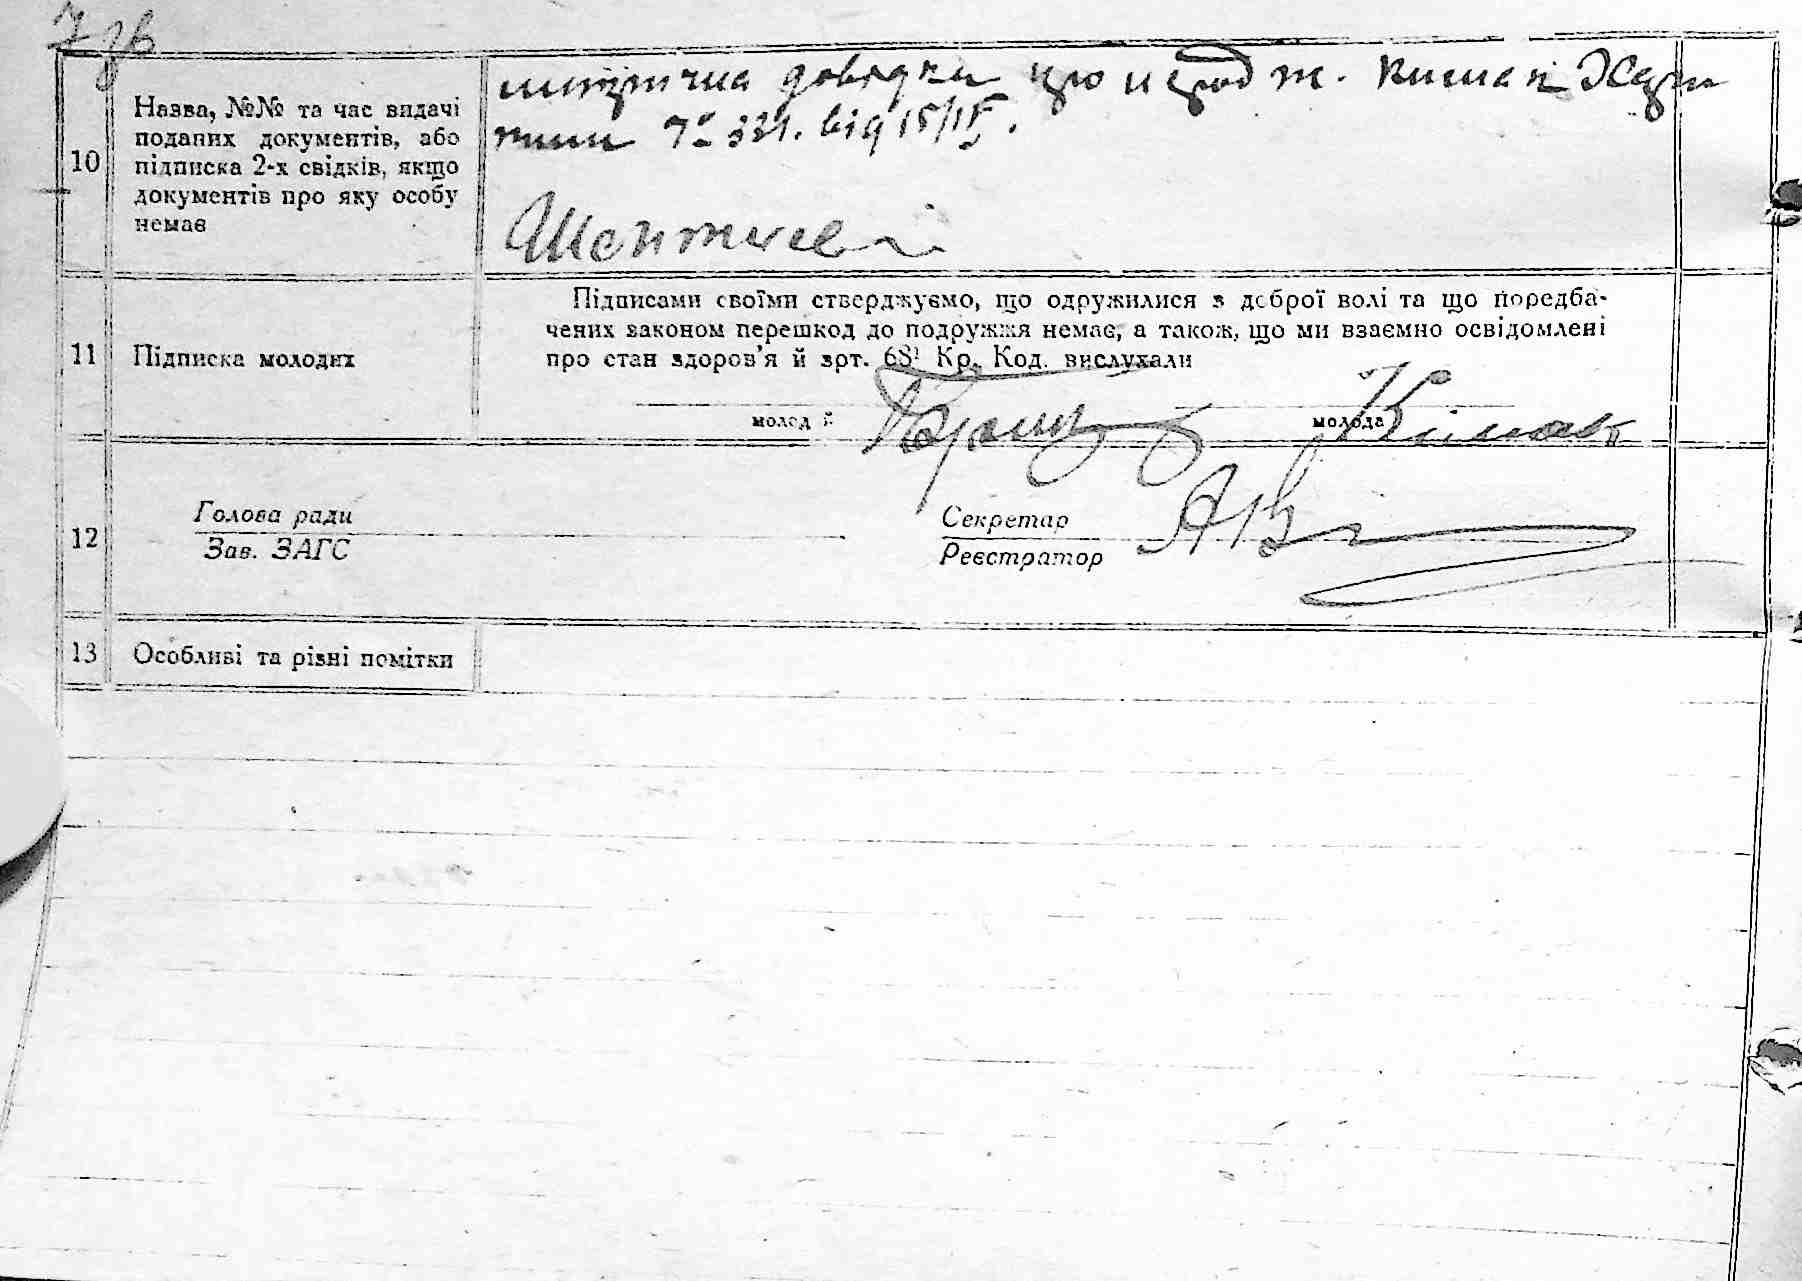 7 зв
10
Назва, №№ та час видачі
поданих документів, або
підписка 2-х свідків, якщо
документів про яку особу
немає
довідка про народж. Кимак Хари
тини № 331. від 15/IV.
11
Підписка молодих
Підписами своїми стверджуємо, що одружилися з доброї волі та що поредба-
чених законом перешкод до подружжя немає, а також, що ми взаємно освідомлені
про стан здоров'я й арт. 68¹ Кр. Код. вислухали
молодий
молода
Кимак
12
Голова ради
Зав. ЗАГС
Секретар
Реєстратор
13
Особливі та різні помітки